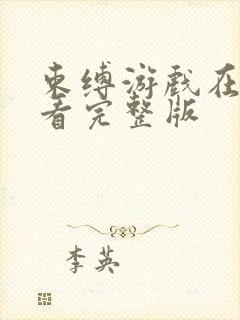 束缚游戏在
看完整版
李英